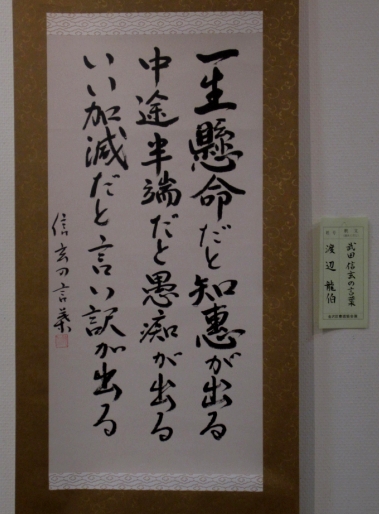 一生懸命だと知恵が出る
中途半端だと愚痴が出る
いい加減だと言い訳が出る
信玄の言葉
武田信玄の言葉
渡辺龍伯